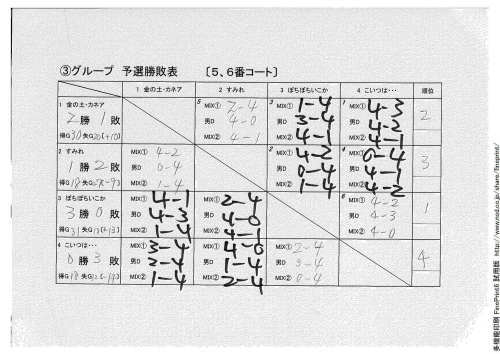 ③グループ 予選勝敗表 〔5、6番コート〕
1 金の土・カネア 2 すみれ 3 ぼちぼちいこか 4 こいつは・・・ 順位
1 金の土・カネア
2 勝 1 敗
5 MIX① 2-4
男D 4-0
MIX② 4-1
3 MIX① 1-4
男D 3-4
MIX② 4-1
1 MIX① 4-3
男D 4-2
MIX② 4-1
2
2 すみれ
1 勝 2 敗
MIX① 4-2
男D 0-4
MIX② 1-4
2 MIX① 4-2
男D 0-4
MIX② 1-4
4 MIX① 0-4
男D 4-1
MIX② 4-2
3
3 ぼちぼちいこか
3 勝 0 敗
得G 31
MIX① 4-1
男D 4-3
MIX② 1-4
MIX① 2-4
男D 4-0
MIX② 4-1
6 MIX① 4-2
男D 4-3
MIX② 4-0
1
4 こいつは・・・
0 勝 3 敗
得G 18
MIX① 3-4
男D 2-4
MIX② 1-4
MIX① 4-0
男D 1-4
MIX② 2-4
MIX① 2-4
男D 3-4
MIX② 0-4
4
多機能印刷 FinePrint6 試用版 http://www.nsd.co.jp/share/fineprint/